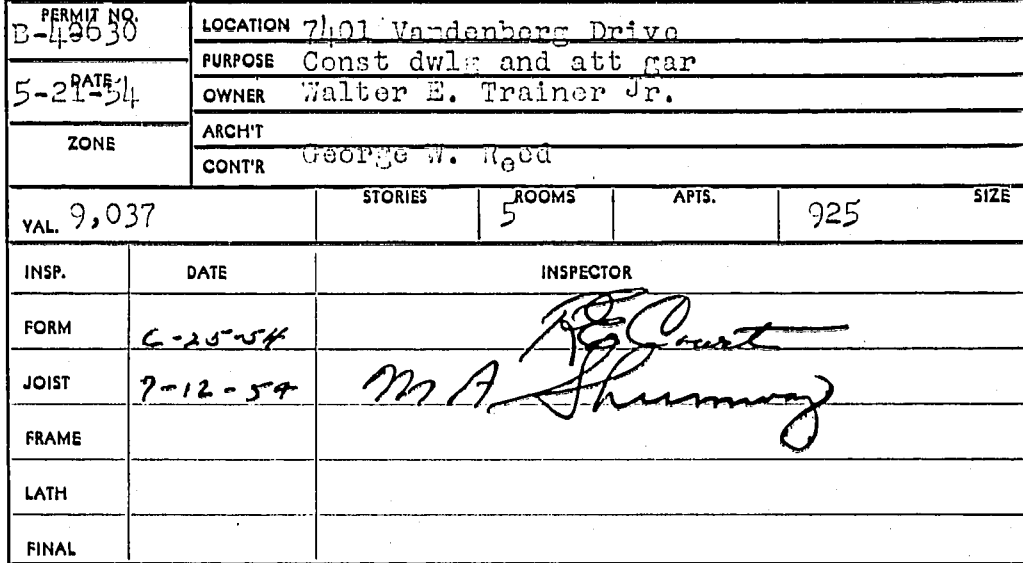 PERMIT NO. B-49630
LOCATION 7401 Vandenberg Drive
PURPOSE Const dwlg and att gar
DATE 5-21-54
OWNER Walter E. Trainer Jr.
ZONE
ARCH'T
CONT'R George W. Reed
VAL. 9,037 STORIES ROOMS 5 APTS. 925 SIZE
INSP. DATE INSPECTOR
FORM 6-25-54 R E Court
JOIST 7-12-54 M A Shumway
FRAME
LATH
FINAL